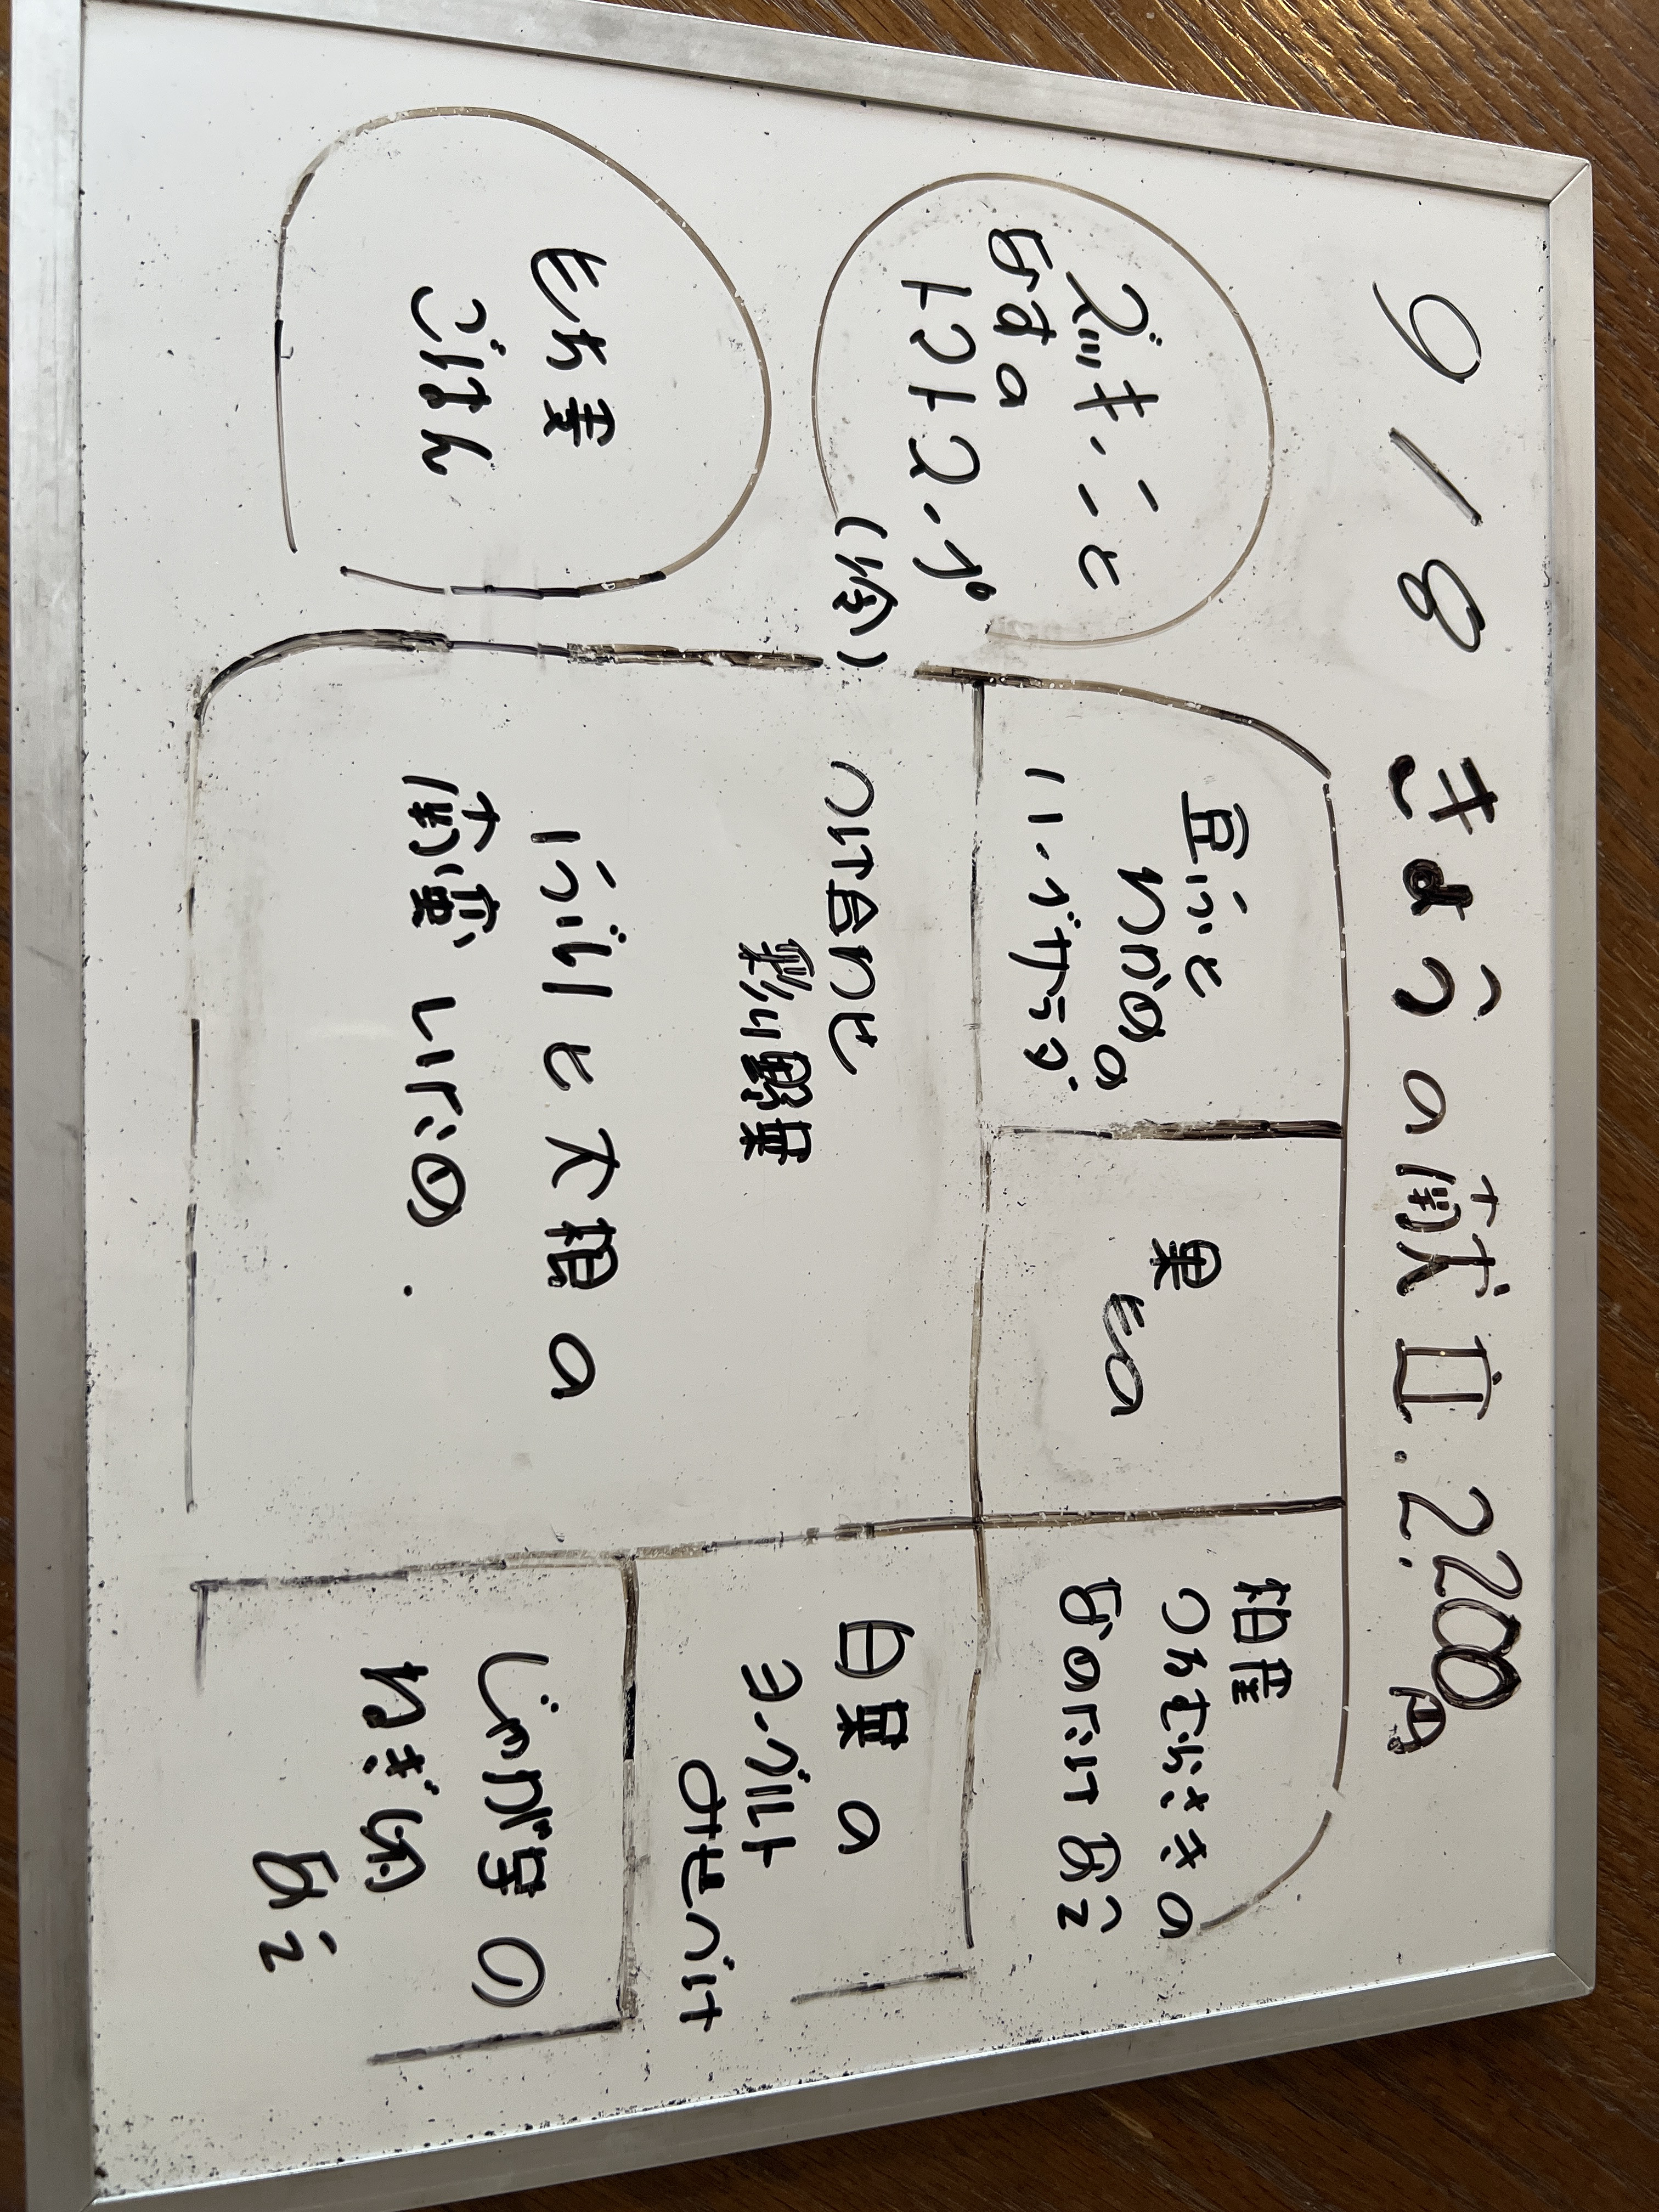 9/8 きょうの献立. 2.200円
ズッキーニと
なすの
トマトスープ
(冷)
豆ふと
わかめの
ハーブサラダ
果もの
柏産
つるむらさきの
なめたけあえ
つけ合わせ
彩り野菜
と大根の
白菜の
ヨーグルト
もち麦
ごはん
じゃが芋の
ねぎ
あえ